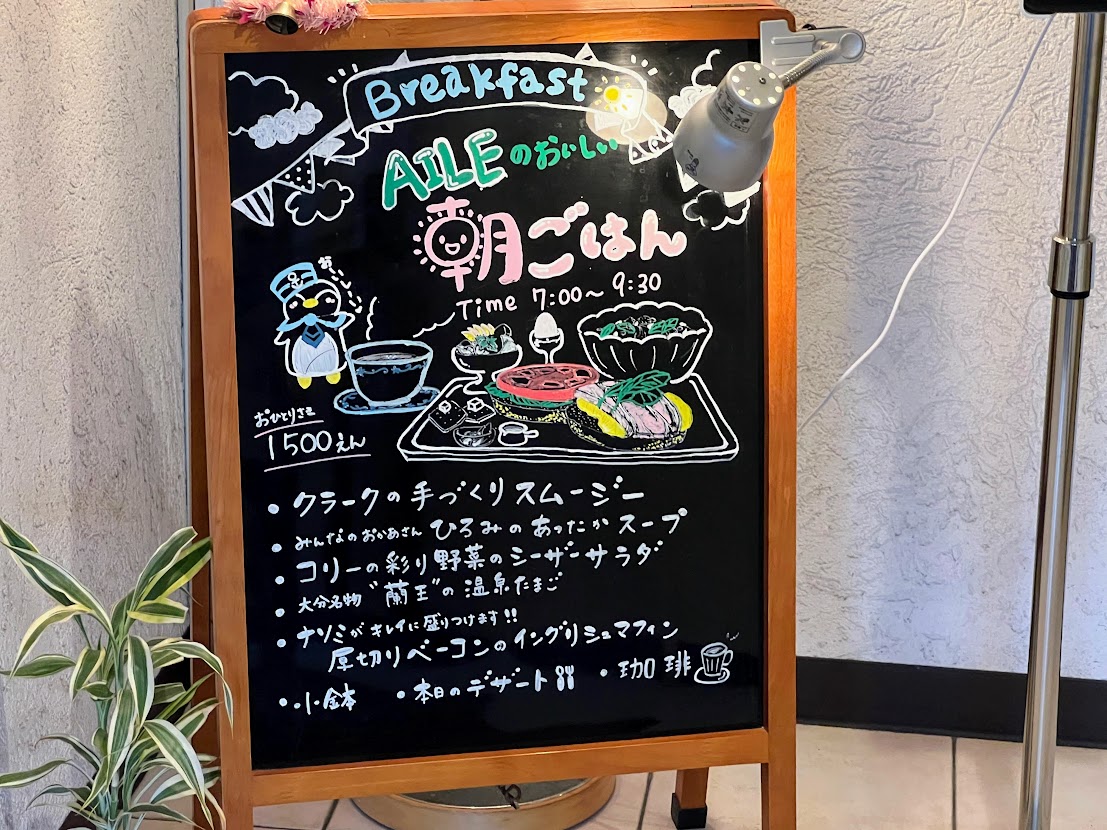 Breakfast
AILEのおいしい
朝ごはん
Time 7:00〜9:30
お〜いしい〜
おひとりさま
1500えん
・クラークの手づくりスムージー
・みんなのおかあさん ひろみのあったかスープ
・コリーの彩り野菜のシーザーサラダ
・大分名物 "蘭王"の温泉たまご
・ナソミがキレイに盛りつけます!!
厚切りベーコンのイングリシュマフィン
・小鉢 ・本日のデザート ・珈琲